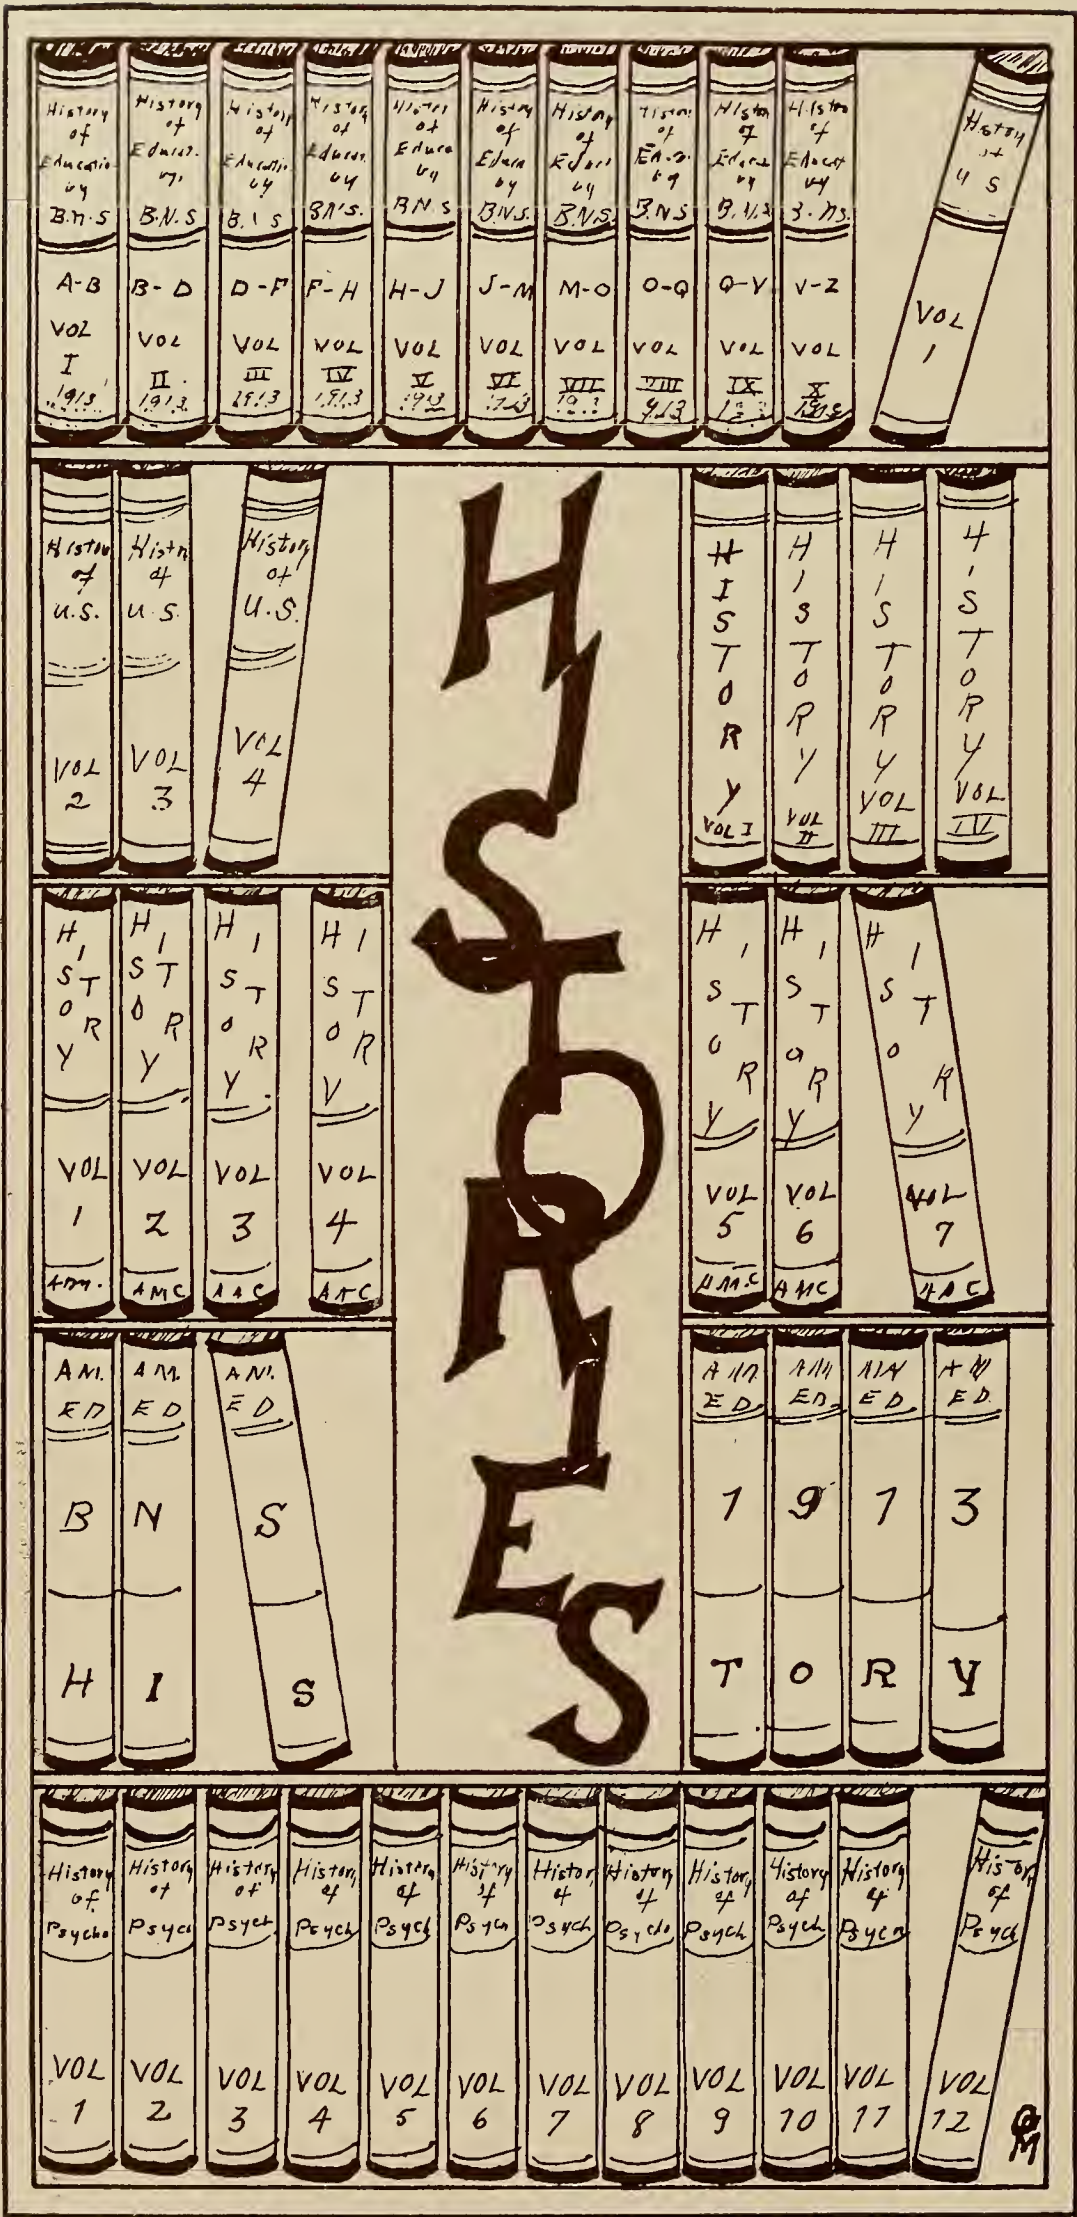 History
of
Educatio
by
B.N.S
A-B
VOL
I
1913
History
of
Educat.
by
B.N.S
B-D
VOL
II
1913
History
of
Educati
by
D-F
VOL
III
1913
History
of
Educat
by
B.N.S.
F-H
VOL
IV
1913
History
of
Educa
by
B.N.S
H-J
VOL
V
1913
History
of
Educa
by
B.N.S.
J-M
VOL
VI
History
of
Educ
by
B.N.S.
M-O
VOL
VII
of
by
B.N.S
O-Q
VOL
VIII
913
Histor
of
Educa
by
B.N.S
Q-V
VOL
IX
Histor
of
Educat
by
V-Z
VOL
X
History
of
U S
VOL
1
Histor
of
U.S.
VOL
2
Histr
of
U.S.
VOL
3
History
of
U.S.
VOL
4
HISTORIES
HISTORY
VOL I
HISTORY
VOL
II
HISTORY
VOL
III
HISTORY
VOL
IV
HISTORY
VOL
1
HISTORY
VOL
2
AMC
HISTORY
VOL
3
HISTORY
VOL
4
HISTORY
VOL
5
AMC
HISTORY
VOL
6
AMC
HISTORY
VOL
7
AM.
ED
B
H
AM.
ED
N
I
AM.
ED
S
S
AM
ED
1
T
AM
ED
9
O
AM
ED
1
R
AM
ED.
3
Y
History
of
Psycho
VOL
1
History
of
Psyco
VOL
2
History
of
Psych
VOL
3
History
of
Psych
VOL
4
History
of
Psych
VOL
5
History
of
Psych
VOL
6
Histor
of
Psych
VOL
7
History
of
Psycho
VOL
8
History
of
Psych
VOL
9
History
of
Psych
VOL
10
History
of
Psych
VOL
11
History
of
Psych
VOL
12